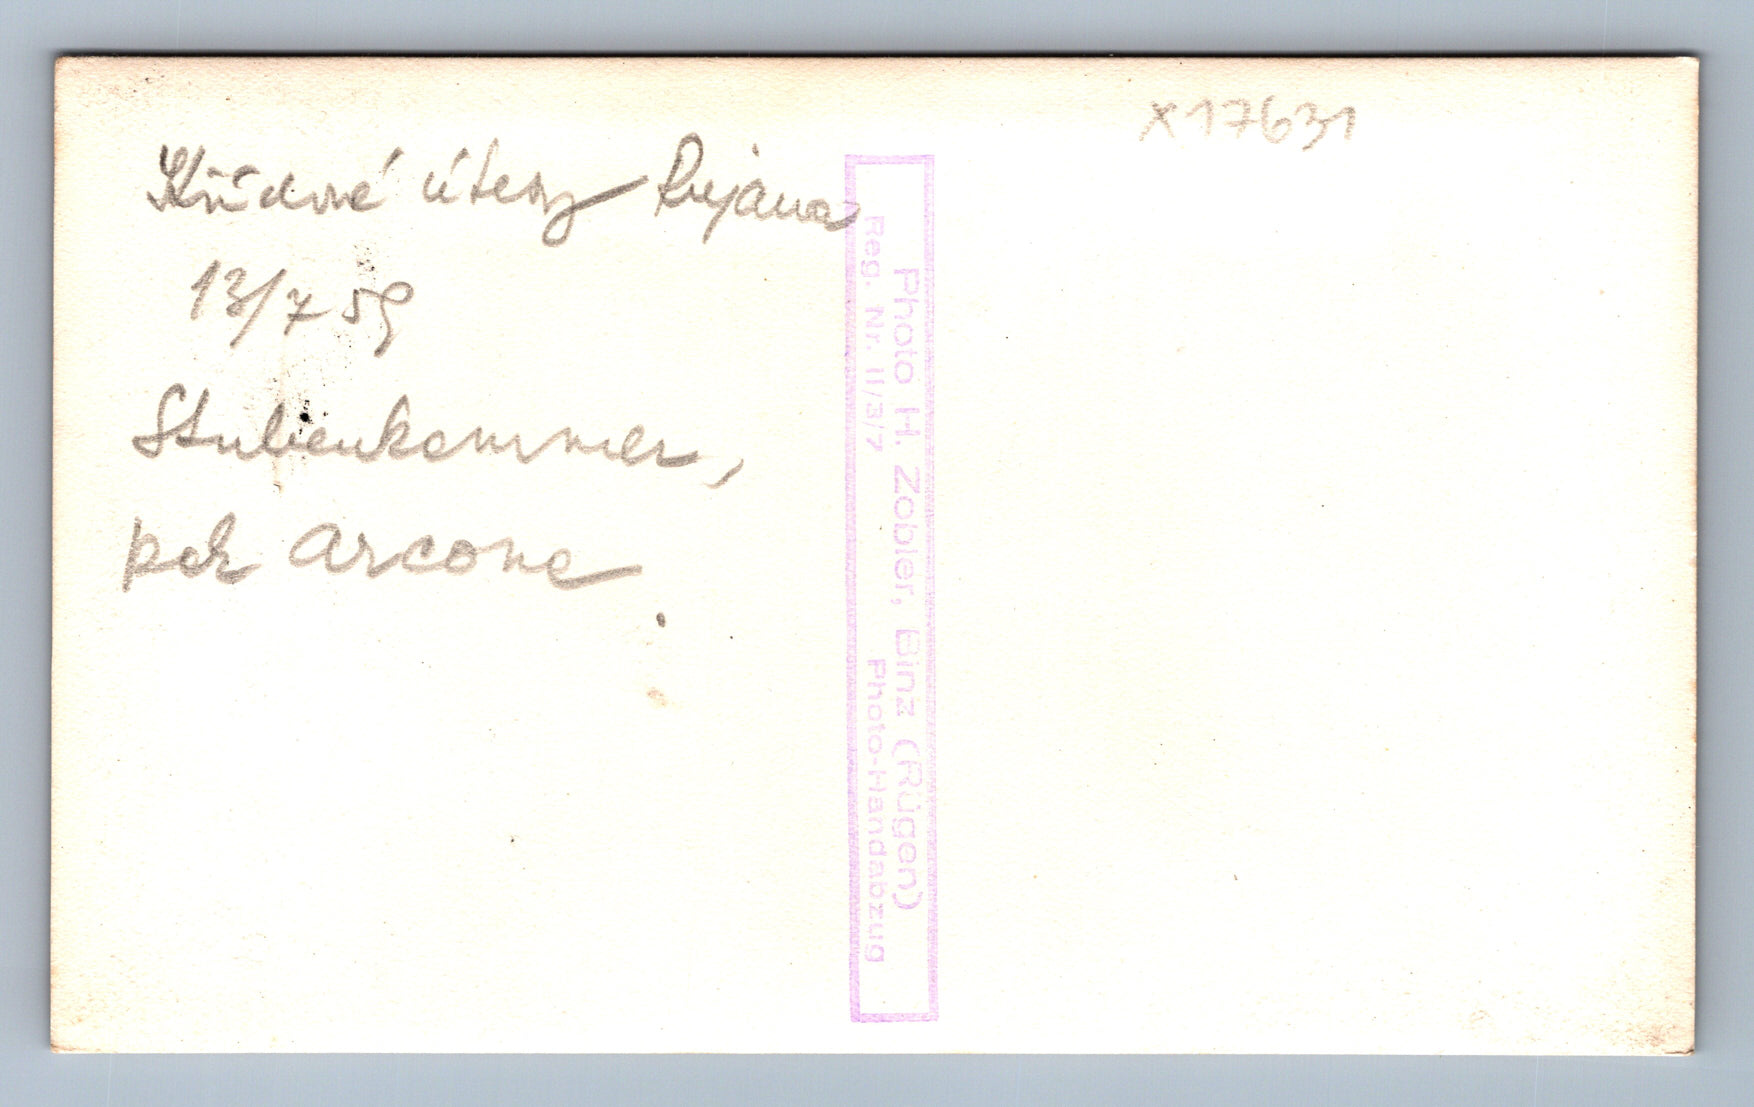 Křídové útesy Rujana
13/7 59
Stubenkammer,
pak Arcona
x17631
Photo H. Zobler, Binz (Rügen)
Reg. Nr. II/3/7 Photo-Handabzug